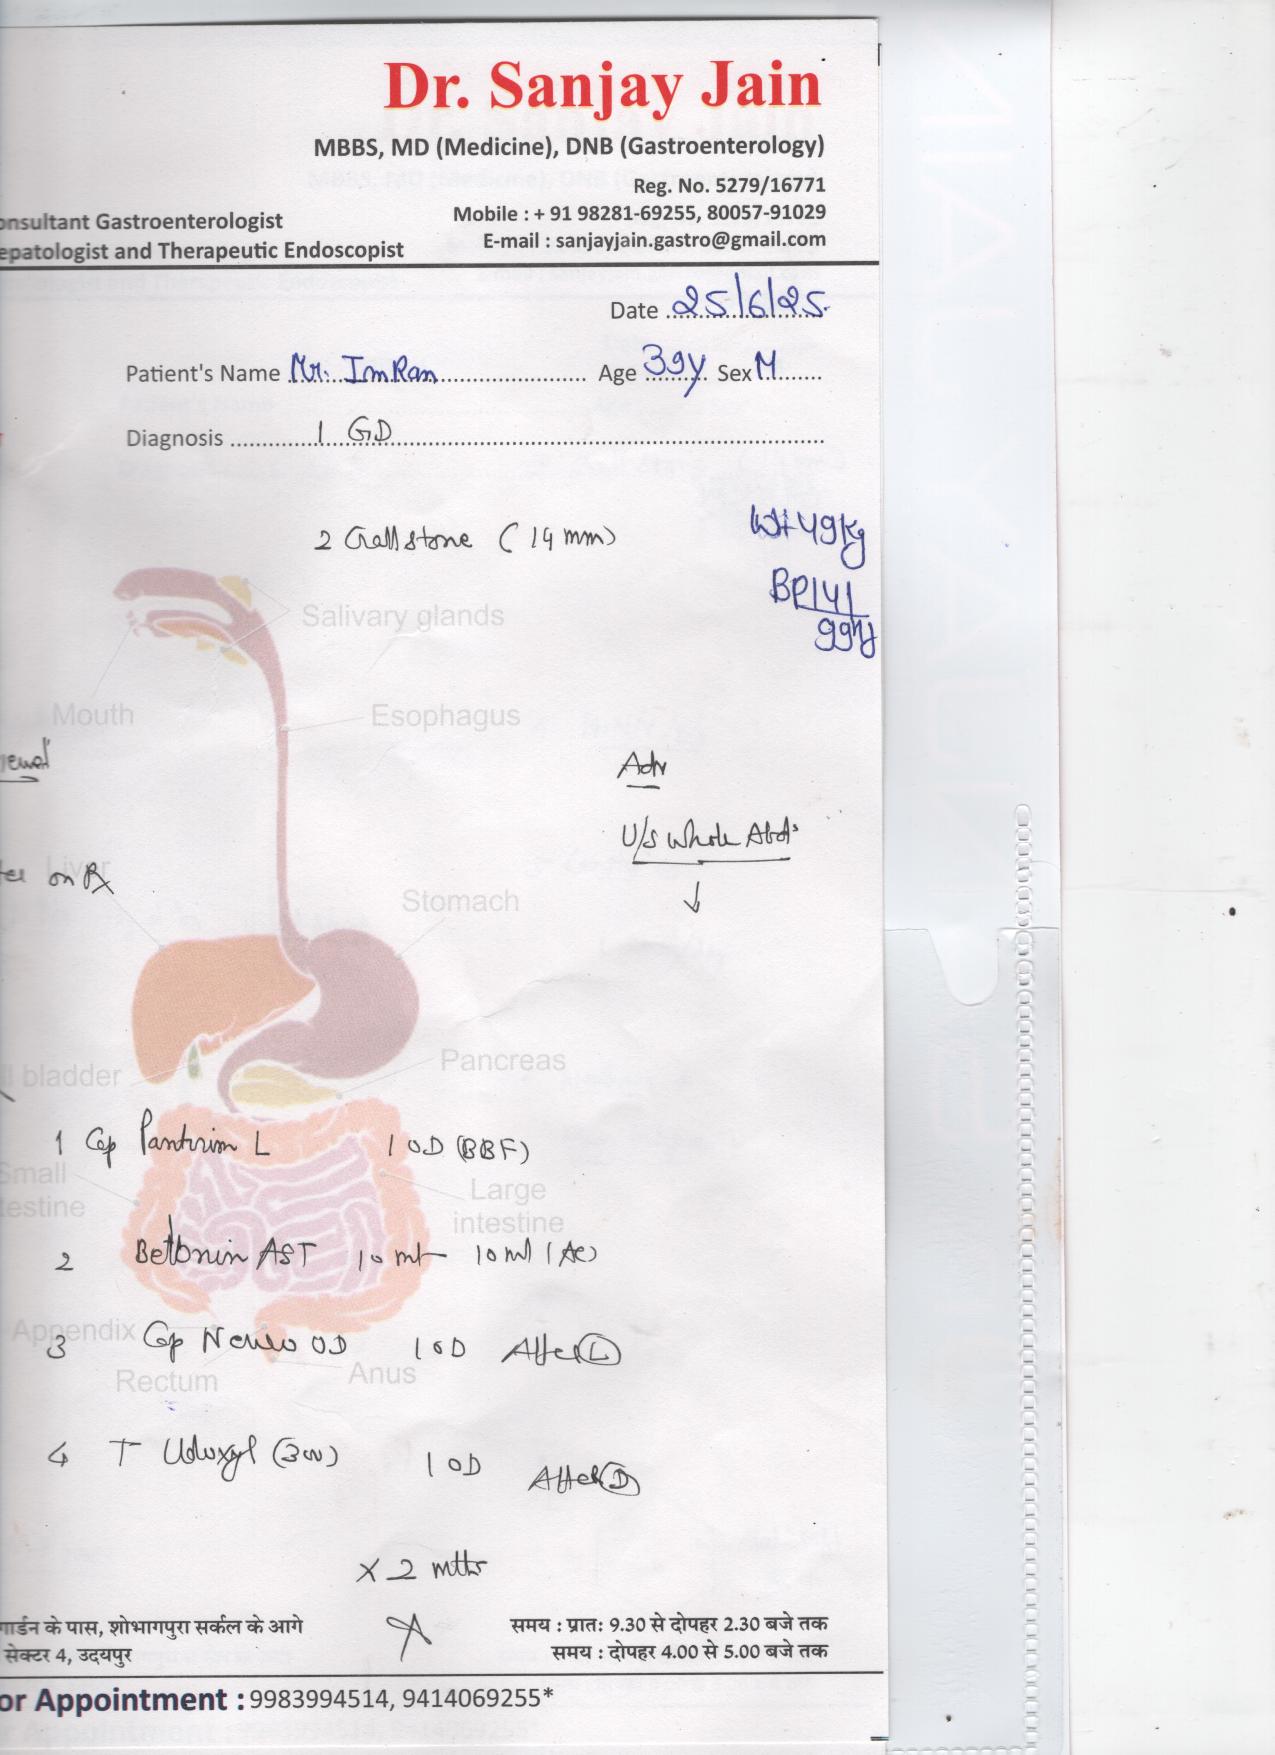 Dr. Sanjay Jain
MBBS, MD (Medicine), DNB (Gastroenterology)
Reg. No. 5279/16771
onsultant Gastroenterologist
Mobile : + 91 98281-69255, 80057-91029
epatologist and Therapeutic Endoscopist
E-mail : sanjayjain.gastro@gmail.com
Date 25/6/25
Patient's Name Mr. ImRan Age 39y Sex M
Diagnosis 1 GD
2 Gall stone (14 mm)
Wt 49kg
BP 141
99
Salivary glands
Mouth
Esophagus
Adv
U/S Whole Abd
↓
Liver
on Rx
Stomach
l bladder
Pancreas
1 Cap L 1 OD (BBF)
Small
testine
Large
intestine
2 AST 10 ml 10 ml
Appendix
3 Cap OD 1 OD After (L)
Rectum
Anus
4 T (300) 1 OD After (D)
x 2 mths
गार्डन के पास, शोभागपुरा सर्कल के आगे
समय : प्रातः 9.30 से दोपहर 2.30 बजे तक
सेक्टर 4, उदयपुर
समय : दोपहर 4.00 से 5.00 बजे तक
or Appointment : 9983994514, 9414069255*